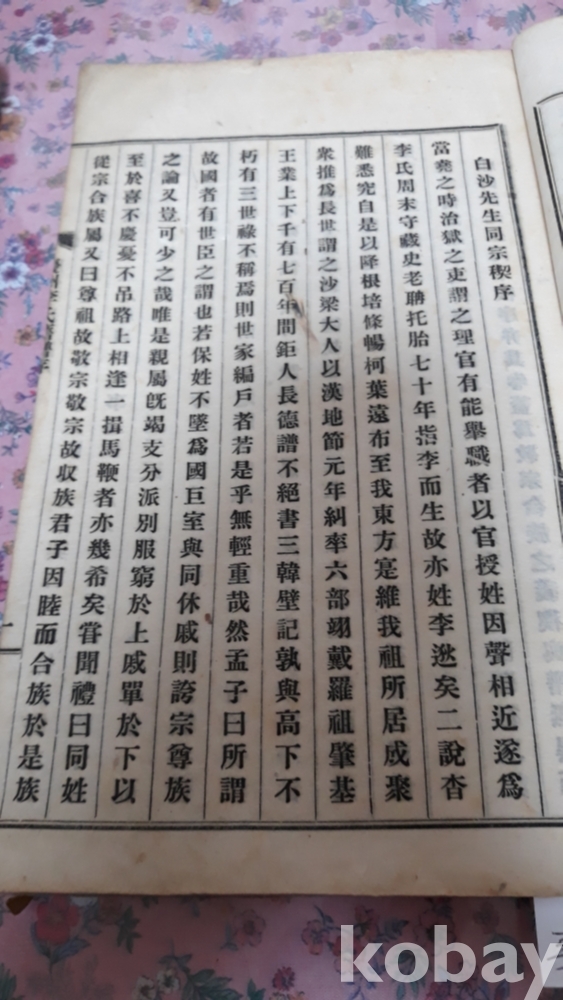 白沙先生同宗稧序
當堯之時治獄之吏謂之理官有能舉職者以官授姓因聲相近遂爲
李氏周末守藏史老聃托胎七十年指李而生故亦姓李逖矣二說杳
難悉究自是以降根培條暢柯葉遠布至我東方寔維我祖所居成聚
衆推爲長世謂之沙梁大人以漢地節元年糾率六部翊戴羅祖肇基
王業上下千有七百年間鉅人長德譜不絕書三韓壁記孰與高下不
朽有三世祿不稱焉則世家編戶者若是乎無輕重哉然孟子曰所謂
故國者有世臣之謂也若保姓不墜爲國巨室與同休戚則誇宗尊族
之論又豈可少之哉唯是親屬旣竭支分派別服窮於上戚單於下以
至於喜不慶憂不吊路上相逢一揖馬鞭者亦幾希矣甞聞禮曰同姓
從宗合族屬又曰尊祖故敬宗敬宗故収族君子因睦而合族於是族
一
kobay